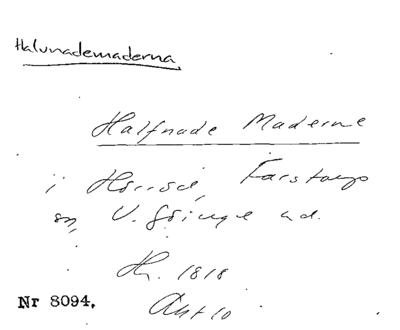 Halvnademaderna
Halfnade Maderne
i Hörröd, Färstorps
sn, V. Göinge hd.
Hr. 1818
Akt 10
Nr 8094.